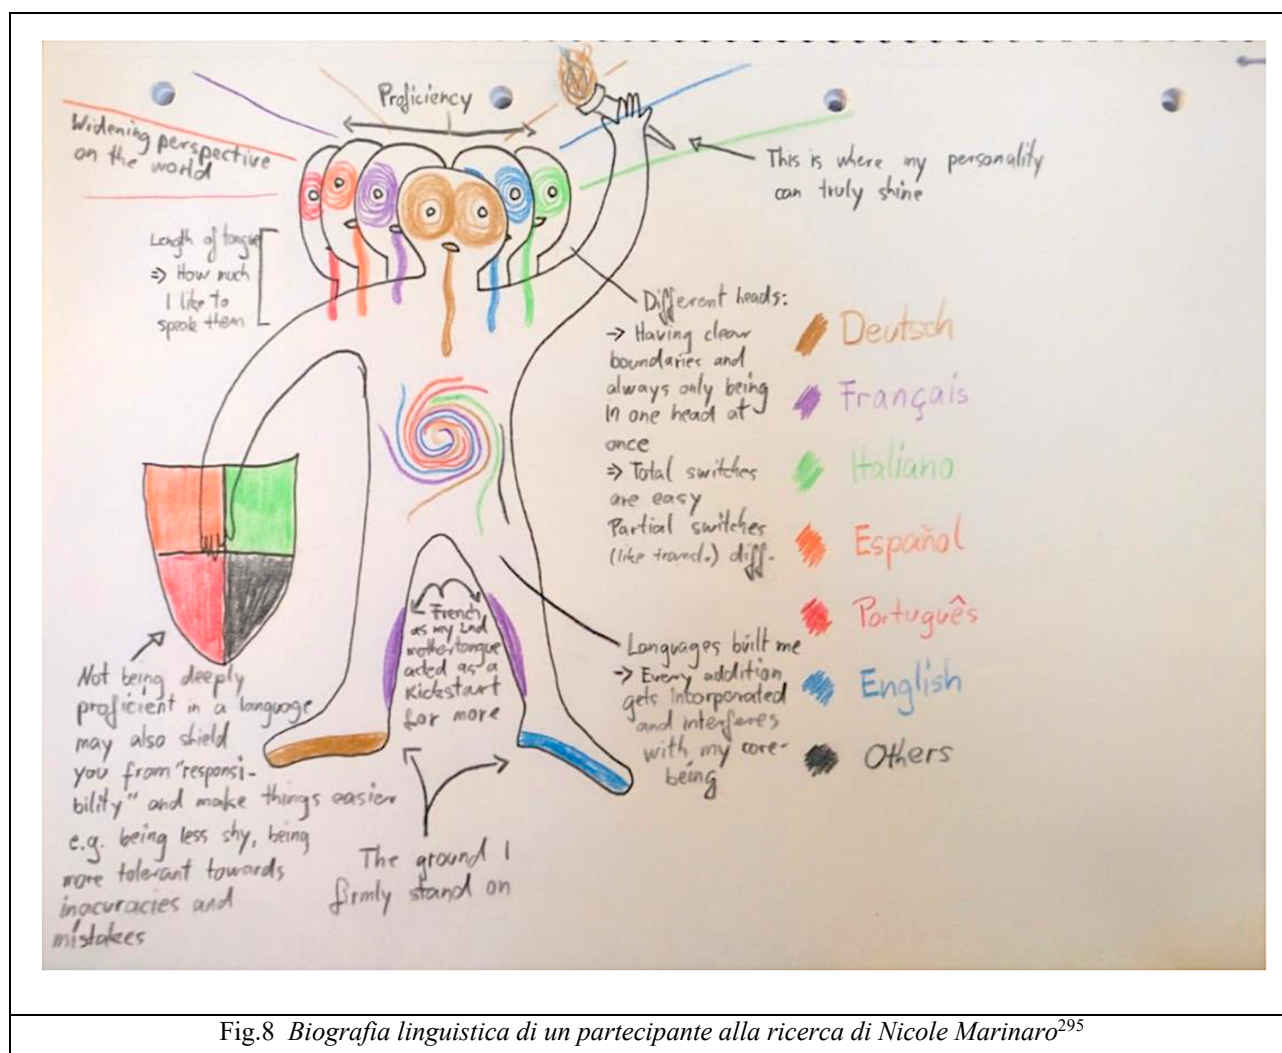 Proficiency
Widening perspective
on the world
This is where my personality
can truly shine
Length of tongue
⇒ How much
I like to
speak them
Different heads:
→ Having clear
boundaries and
always only being
in one head at
once
⇒ Total switches
are easy
Partial switches
(like transl.) diff.
Deutsch
Français
Italiano
Español
Português
English
Others
French
as my 2nd
mothertongue
acted as a
Kickstart
for more
Languages built me
→ Every addition
gets incorporated
and interferes
with my core-
being
Not being deeply
proficient in a language
may also shield
you from "responsi-
bility" and make things easier
e.g. being less shy, being
more tolerant towards
inacuracies and
mistakes
The ground I
firmly stand on
Fig.8 Biografia linguistica di un partecipante alla ricerca di Nicole Marinaro295